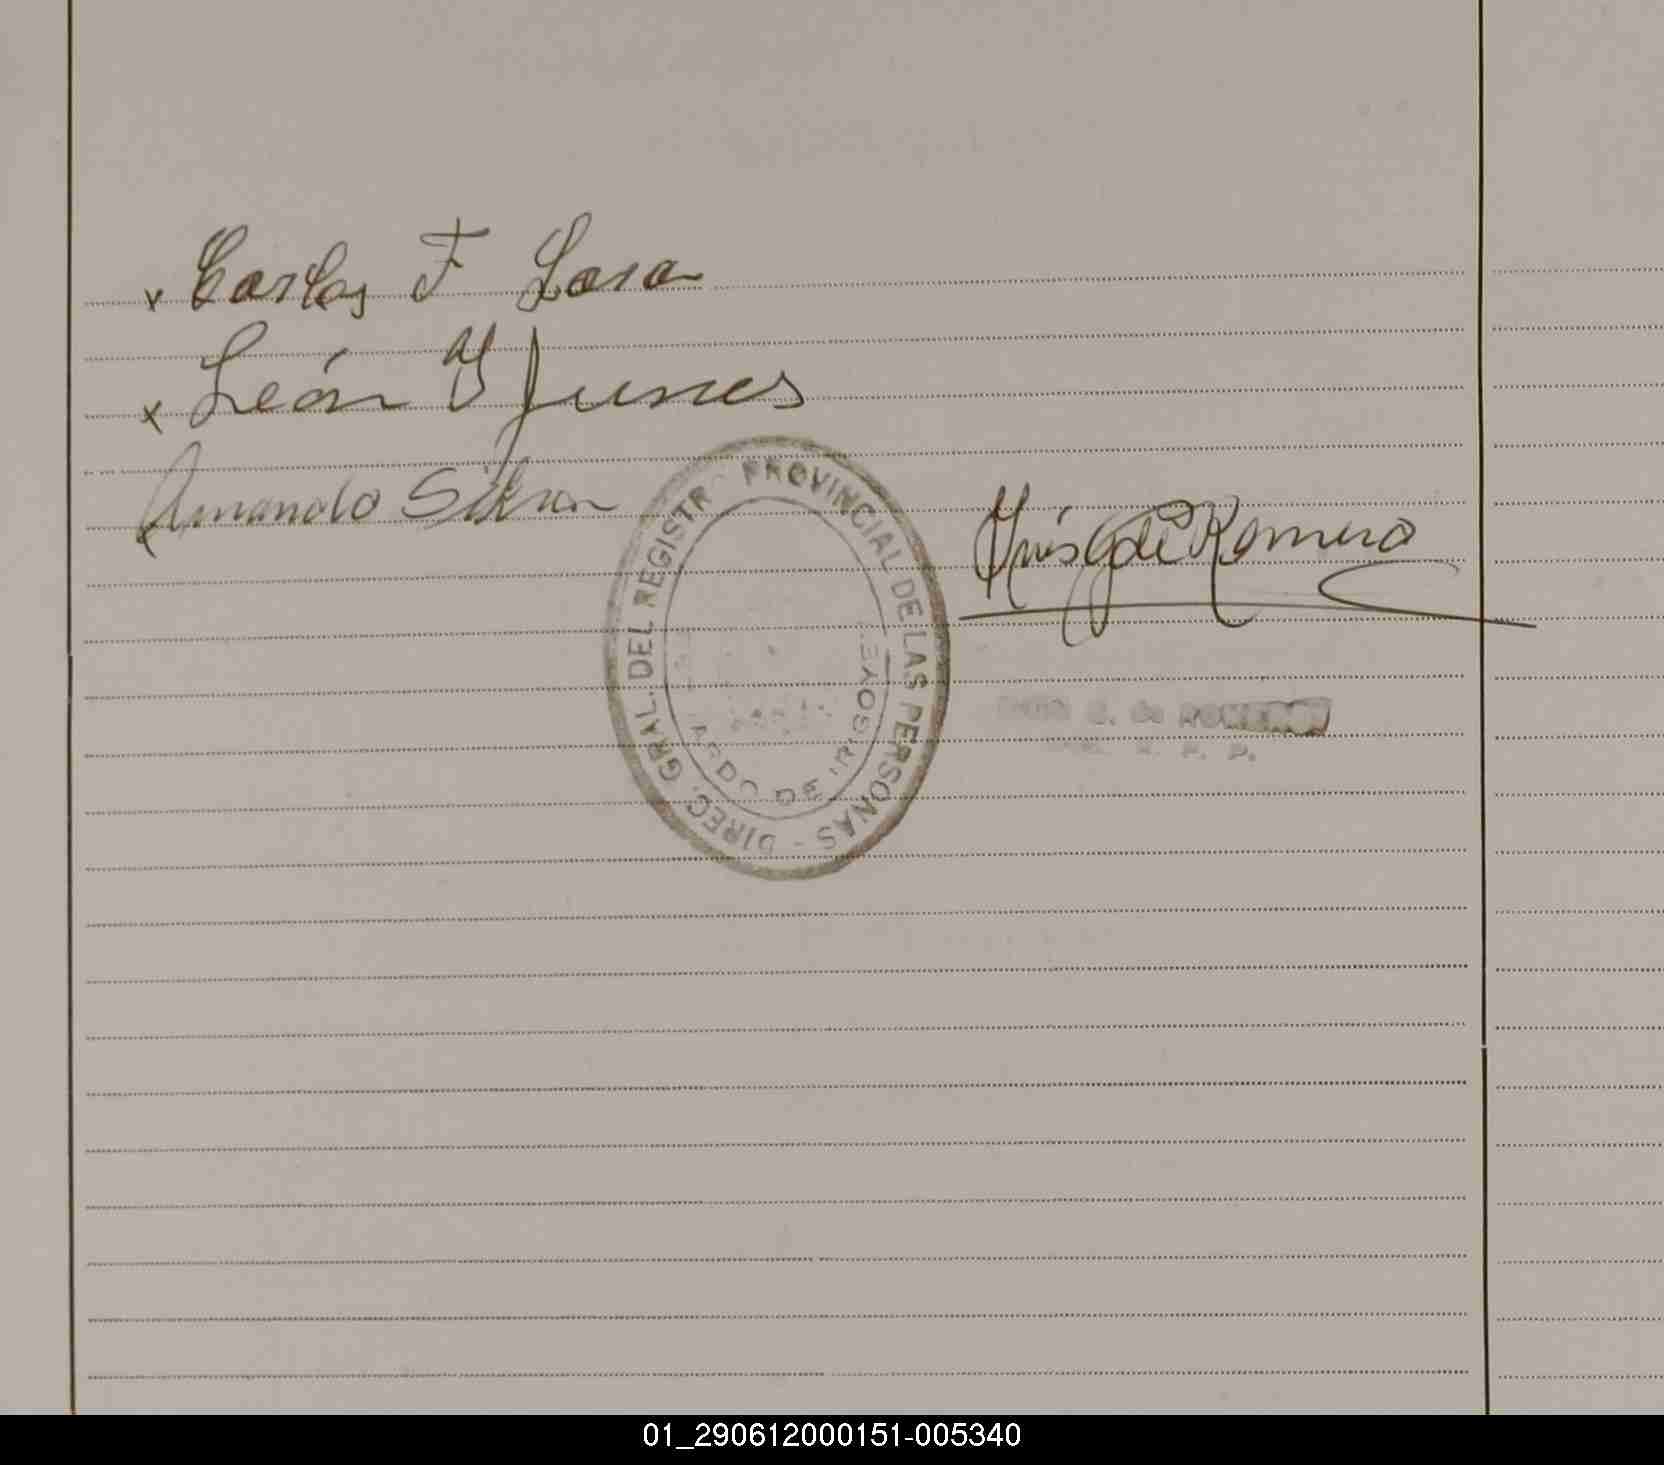 x Carlos F Lasa
x León Y Junes
Armando Silva
Inés G de Romero
DIREC. GRAL. DEL REGISTRO PROVINCIAL DE LAS PERSONAS -
DO DE IRIGOYEN
G. de ROMERO
R. P. P.
01_290612000151-005340